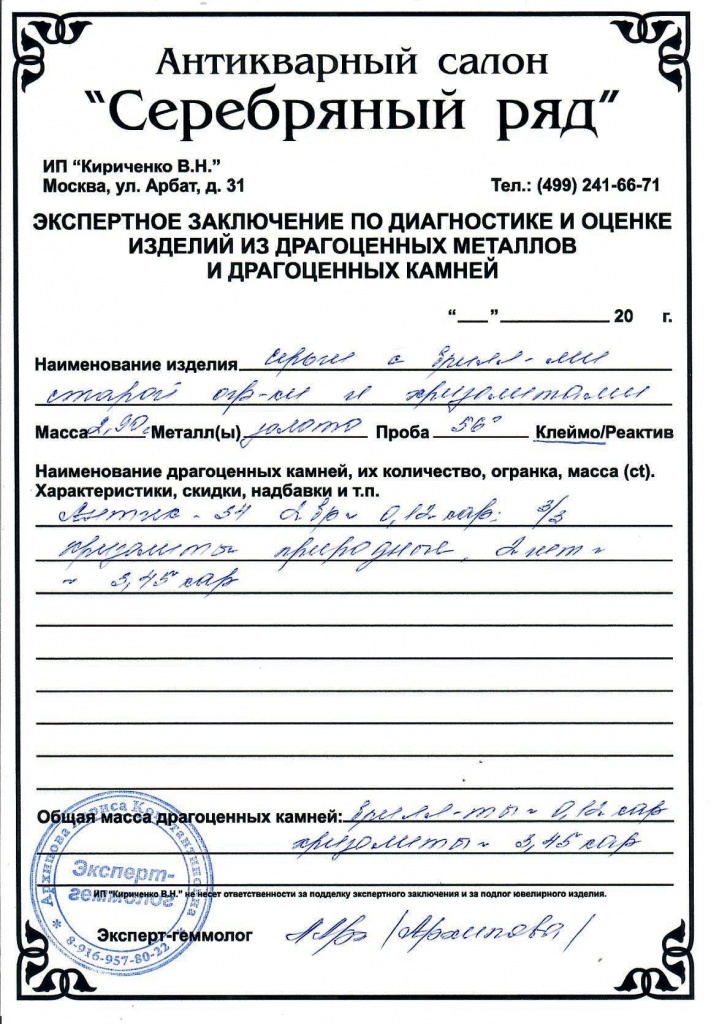 Антикварный салон
“Серебряный ряд”
ИП “Кириченко В.Н.”
Москва, ул. Арбат, д. 31
Тел.: (499) 241-66-71
ЭКСПЕРТНОЕ ЗАКЛЮЧЕНИЕ ПО ДИАГНОСТИКЕ И ОЦЕНКЕ
ИЗДЕЛИЙ ИЗ ДРАГОЦЕННЫХ МЕТАЛЛОВ
И ДРАГОЦЕННЫХ КАМНЕЙ
“___” ____________ 20 г.
Наименование изделия серьги с брилл-ми
старой огр-ки и хризолитами
Масса 2,90 г Металл(ы) золото Проба 56° Клеймо/Реактив
Наименование драгоценных камней, их количество, огранка, масса (ct).
Характеристики, скидки, надбавки и т.п.
Антик - 34 2 бр ~ 0,12 кар. 3/3
хризолиты природные, 2
~ 3,45 кар
Общая масса драгоценных камней: брилл-ты ~ 0,12 кар
хризолиты ~ 3,45 кар
ИП “Кириченко В.Н.” не несет ответственности за подделку экспертного заключения и за подлог ювелирного изделия.
Эксперт-геммолог /Архипова/
Архипова Лариса Константиновна
Эксперт-
геммолог
* 8-916-957-80-22 *